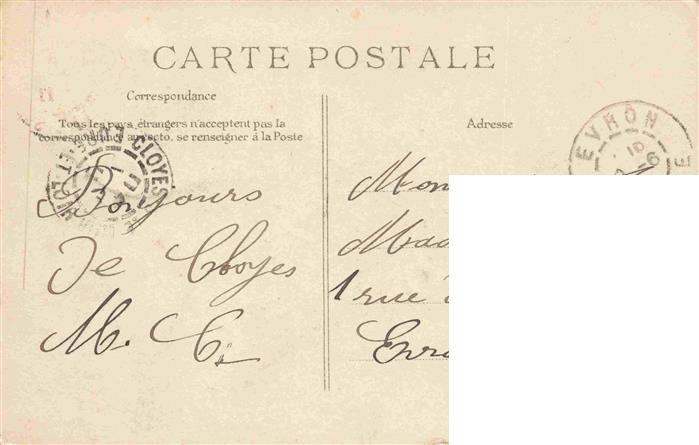 CARTE POSTALE
Correspondance
Tous les pays étrangers n'acceptent pas la
correspondance au recto, se renseigner à la Poste
Adresse
CLOYES
EURE-ET-LOIR
EVRON
Bonjours
De Cloyes
M. C.
Mon
Mad
1 rue
Evro